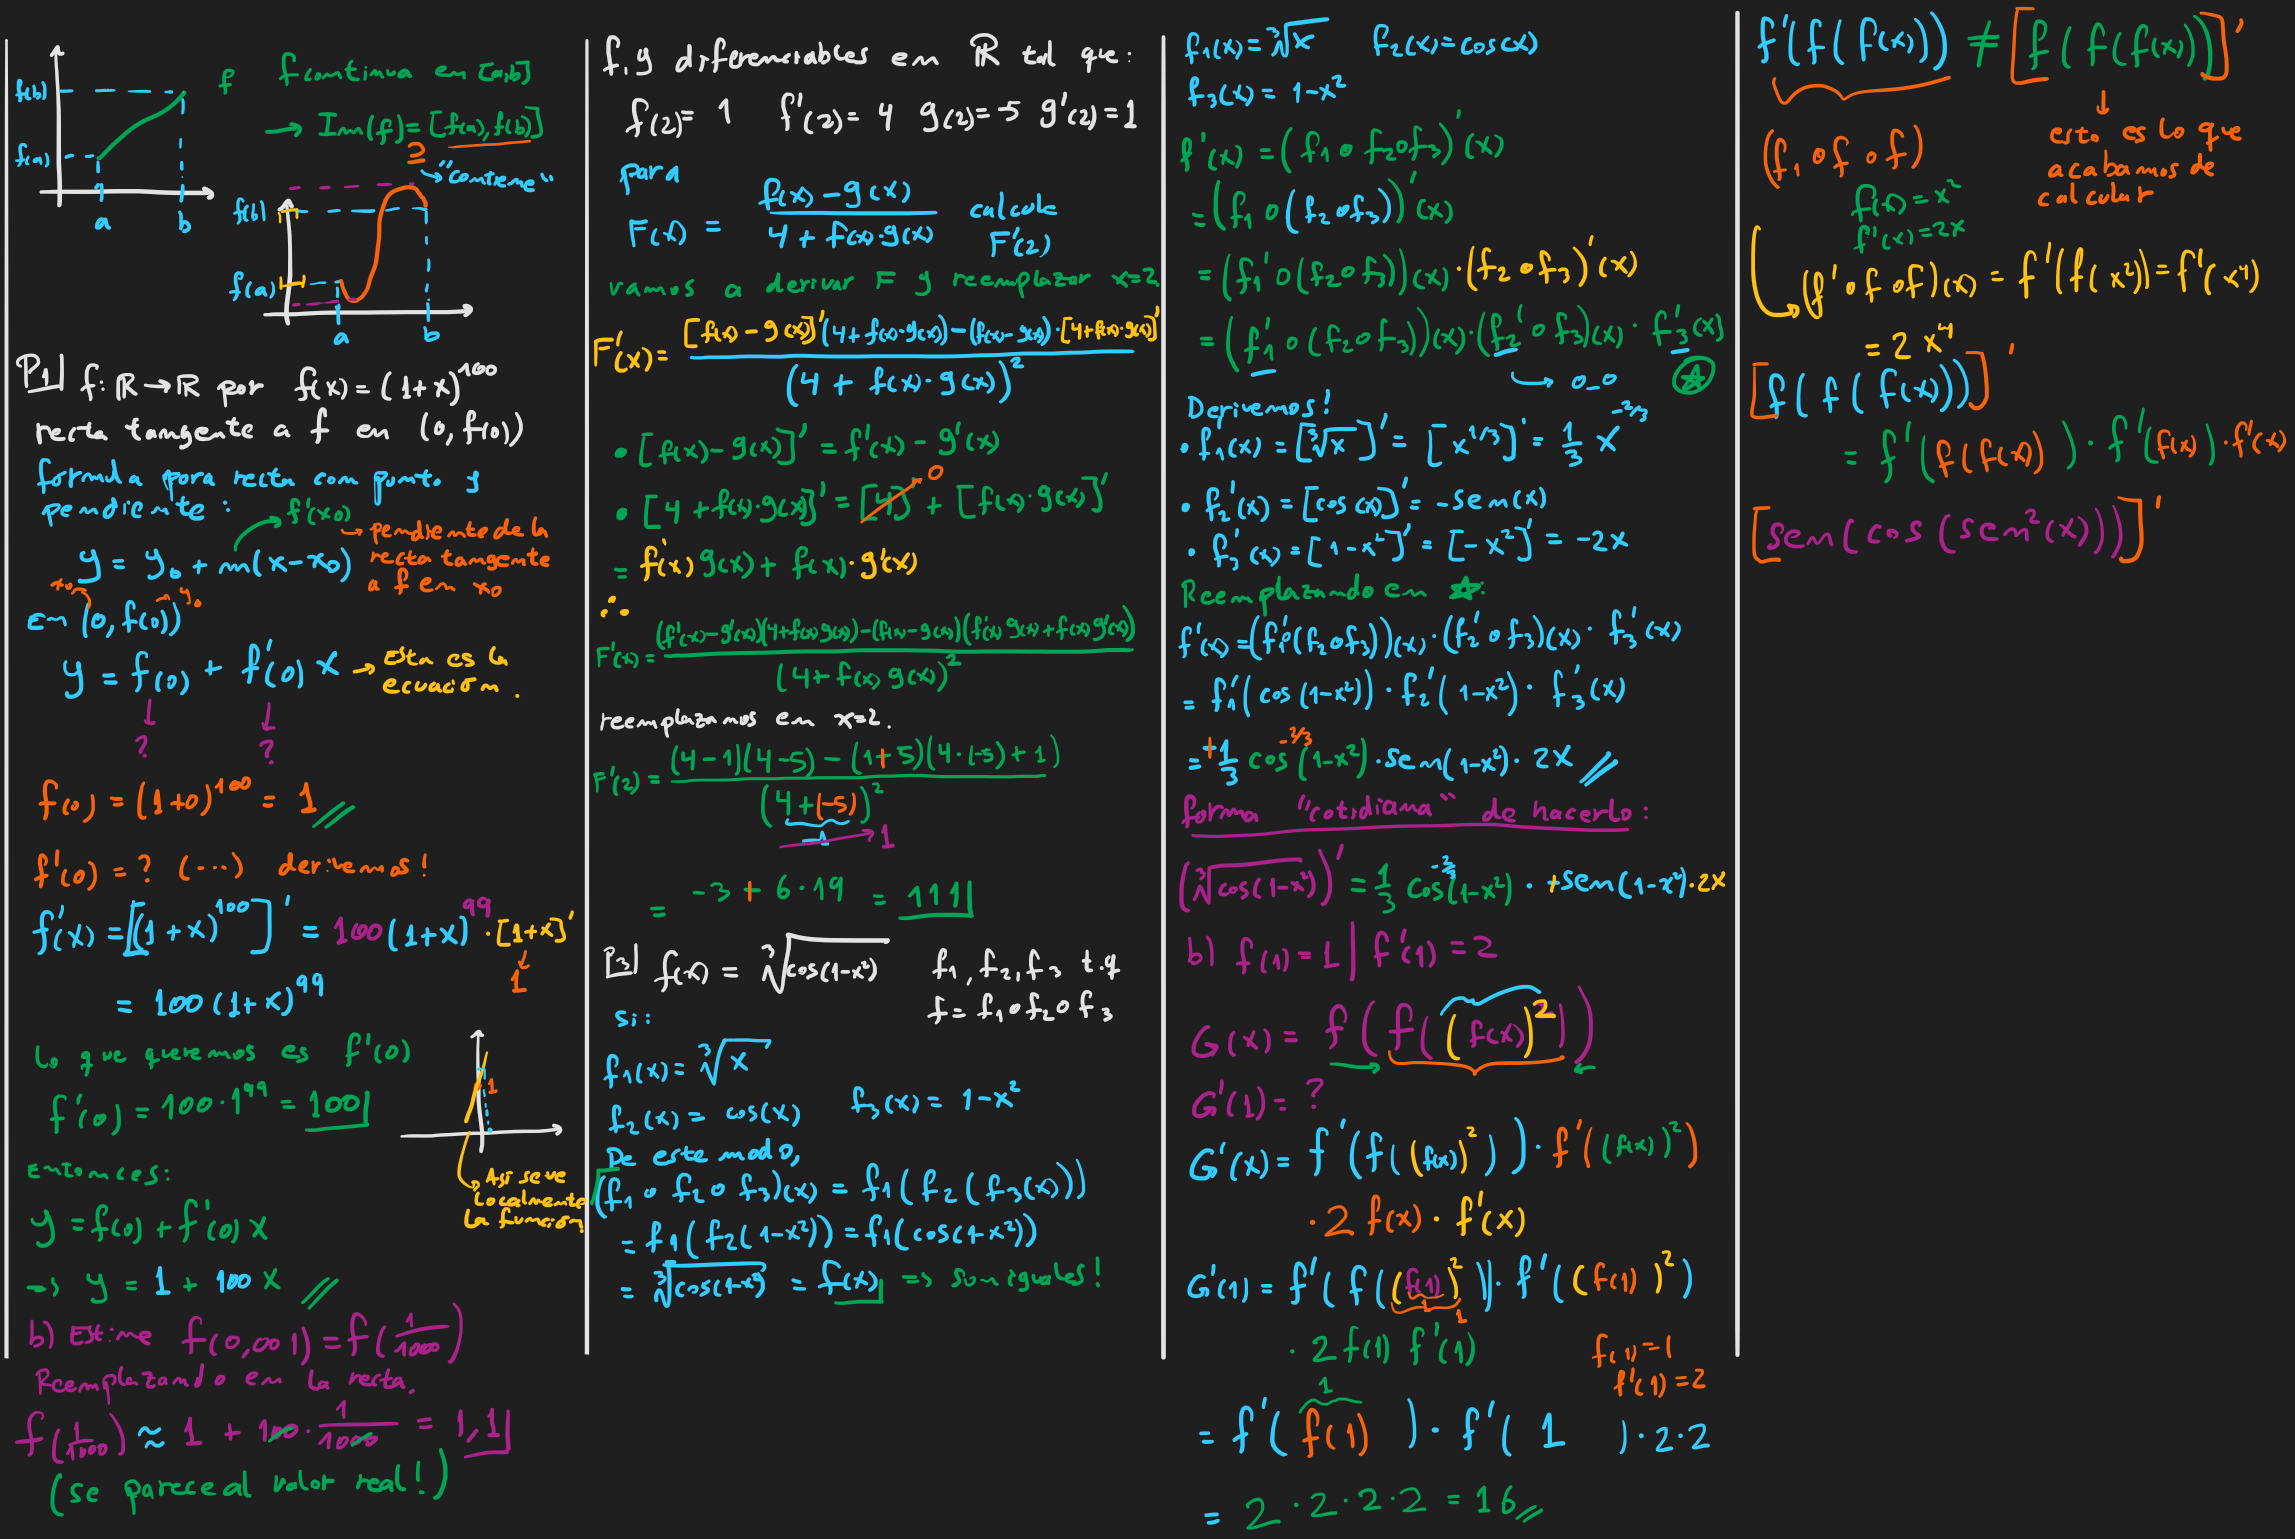 f(b)
f(a)
a
b
f
f continua en [a,b]
→ Im(f) = [f(a), f(b)]
⊇
→ "contiene"
f(b)
f(a)
a
b
P1| f: ℝ → ℝ por f(x) = (1+x)^100
recta tangente a f en (0, f(0))
formula para recta con punto y
pendiente:
f'(x0)
y = y0 + m(x-x0)
→ pendiente de la
recta tangente
a f en x0
x0
y0
En (0, f(0))
y = f(0) + f'(0) x → Esta es la
ecuación.
? ?
f(0) = (1+0)^100 = 1 //
f'(0) = ? (...) derivemos!
f'(x) = [(1+x)^100]' = 100(1+x)^99 · [1+x]'
1
= 100 (1+x)^99
lo que queremos es f'(0)
f'(0) = 100·1^99 = 100|
1
Así se ve
localmente
la función
Entonces:
y = f(0) + f'(0) x
→ y = 1 + 100 x //
b) Estime f(0,001) = f(1/1000)
Reemplazando en la recta.
f(1/1000) ≈ 1 + 100 · 1/1000 = 1,1|
(se parece al valor real!)
f, g diferenciables en ℝ tal que:
f(2) = 1 f'(2) = 4 g(2) = -5 g'(2) = 1
para
F(x) = (f(x) - g(x)) / (4 + f(x)·g(x)) calcule
F'(2)
vamos a derivar F y reemplazar x=2
F'(x) = ([f(x) - g(x)]'(4 + f(x)·g(x)) - (f(x) - g(x))·[4 + f(x)·g(x)]') / (4 + f(x)·g(x))^2
• [f(x) - g(x)]' = f'(x) - g'(x)
• [4 + f(x)·g(x)]' = [4]' + [f(x)·g(x)]'
0
= f'(x) g(x) + f(x)·g'(x)
∴
F'(x) = ((f'(x) - g'(x))(4 + f(x) g(x)) - (f(x) - g(x))(f'(x) g(x) + f(x) g'(x))) / (4 + f(x) g(x))^2
reemplazamos en x=2.
F'(2) = ((4-1)(4-5) - (1+5)(4·(-5)+1)) / (4+(-5))^2
1
= -3 + 6·19 = 111|
P3| f(x) = ∛cos(1-x²) f1, f2, f3 t.q
f = f1 ∘ f2 ∘ f3
si:
f1(x) = ∛x
f2(x) = cos(x) f3(x) = 1-x²
De este modo,
(f1 ∘ f2 ∘ f3)(x) = f1(f2(f3(x)))
= f1(f2(1-x²)) = f1(cos(1-x²))
= ∛cos(1-x²) = f(x)| => son iguales!
f1(x) = ∛x f2(x) = cos(x)
f3(x) = 1-x²
f'(x) = (f1 ∘ f2 ∘ f3)'(x)
= (f1 ∘ (f2 ∘ f3))'(x)
= (f1' ∘ (f2 ∘ f3))(x) · (f2 ∘ f3)'(x)
= (f1' ∘ (f2 ∘ f3))(x) · (f2' ∘ f3)(x) · f3'(x)
→ 0_0 ☆
Derivemos!
• f1'(x) = [∛x]' = [x^1/3]' = 1/3 x^-2/3
• f2'(x) = [cos(x)]' = -sen(x)
• f3'(x) = [1-x²]' = [-x²]' = -2x
Reemplazando en ☆:
f'(x) = (f1'∘(f2∘f3))(x) · (f2' ∘ f3)(x) · f3'(x)
= f1'(cos(1-x²)) · f2'(1-x²) · f3'(x)
= +1/3 cos^-2/3(1-x²) · sen(1-x²) · 2x //
forma "cotidiana" de hacerlo:
(∛cos(1-x²))' = 1/3 cos^-2/3(1-x²) · +sen(1-x²)·2x
b) f(1) = 1 | f'(1) = 2
G(x) = f(f((f(x))²))
G'(1) = ?
G'(x) = f'(f((f(x))²)) · f'((f(x))²)
· 2 f(x) · f'(x)
G'(1) = f'(f((f(1))²)) · f'((f(1))²)
1
1
· 2 f(1) f'(1)
f(1) = 1
f'(1) = 2
1
= f'(f(1)) · f'(1) · 2·2
= 2 · 2 · 2 · 2 = 16 //
f'(f(f(x))) ≠ [f(f(f(x)))]'
↓
esto es lo que
acabamos de
calcular
(f1 ∘ f ∘ f)
f(x) = x²
f'(x) = 2x
(f' ∘ f ∘ f)(x) = f'(f(x²)) = f'(x⁴)
= 2 x⁴
[f(f(f(x)))]'
= f'(f(f(x))) · f'(f(x)) · f'(x)
[sen(cos(sen²(x)))]'